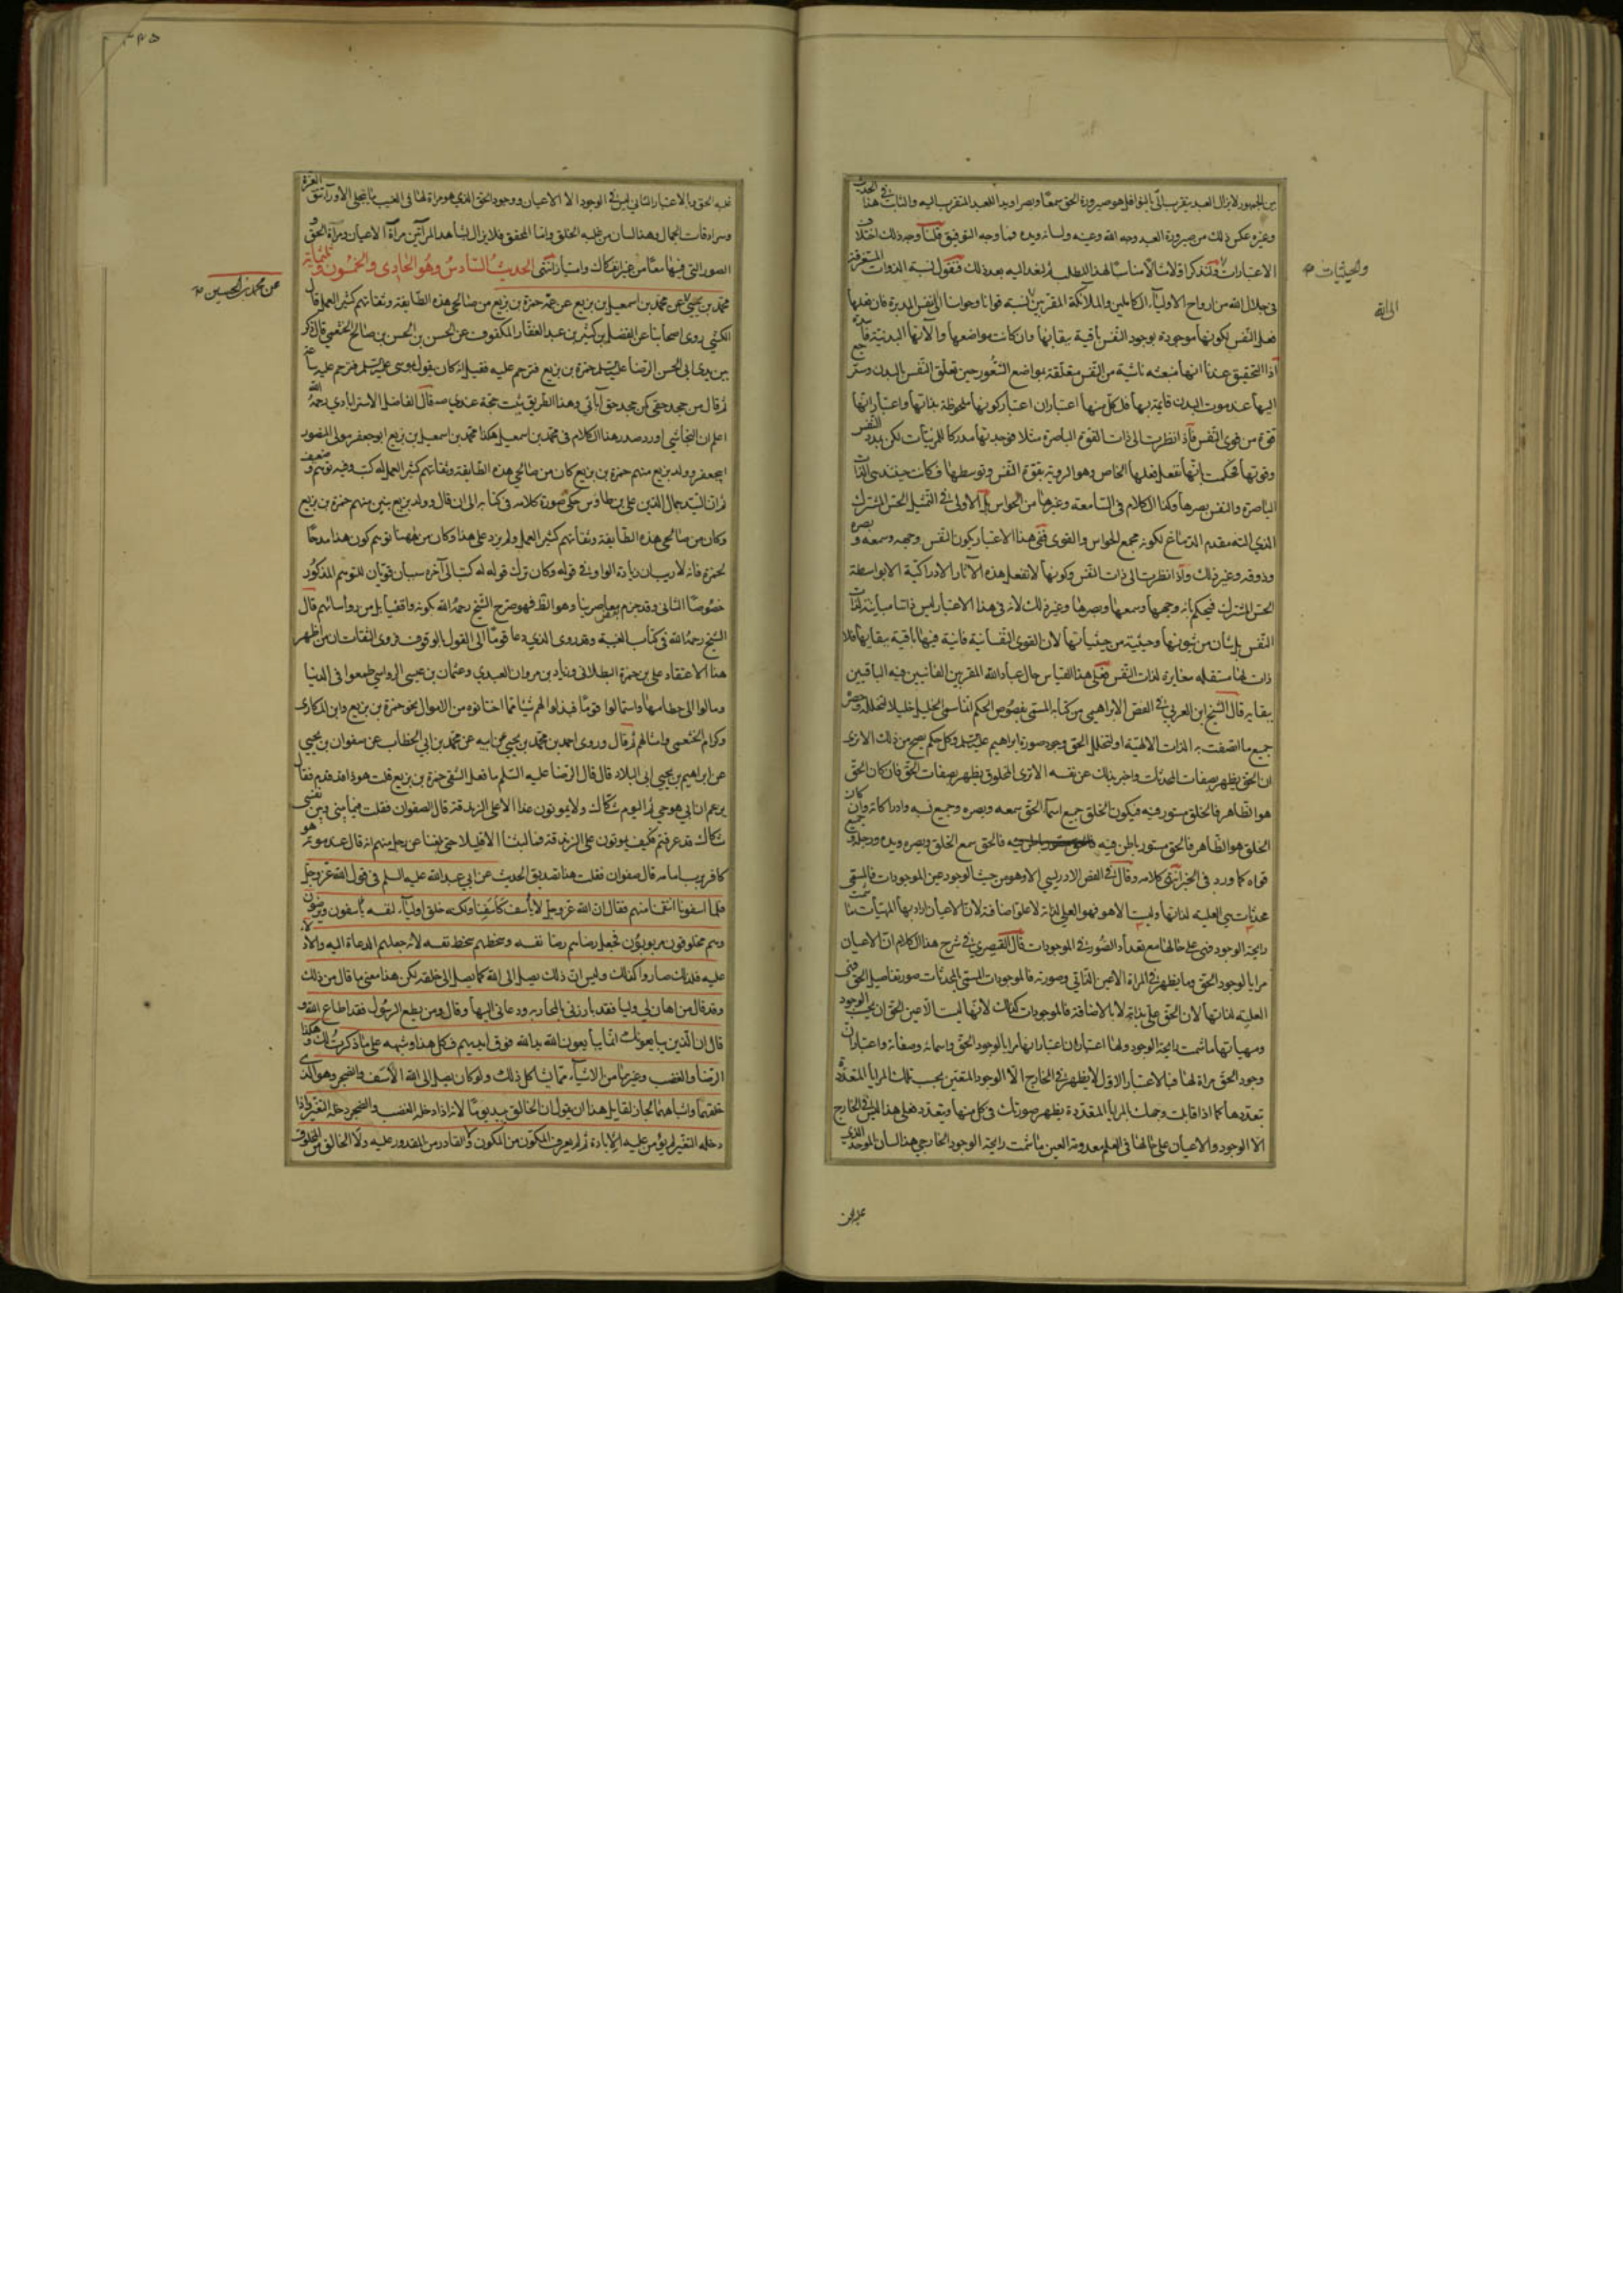 بين الجمهور لا يزال العبد يتقرب الى بالنوافل هو صيرورة الحق سمعًا وبصرا ويدا للعبد المتقرب اليه والثابت في هذا الحديث
وغيره عكس ذلك من صيرورة العبد وجه الله وعينه ولسانه ويده فما وجه التوفيق قلنا وجه ذلك اختلاف
الاعتبارات والحيثيات ولنذكر اولا مثالا مناسبًا لهذا المطلب ثم لنعد اليه بعد ذلك فنقول نسبة الذوات المستغرقة
في جلال الله من ارواح الاولياء الكاملين والملائكة المقربين اليه نسبة قوانا وحواسنا الى النفس المدبرة فان فعلها
فعل النفس لكونها موجودة بوجود النفس باقية ببقائها وان كانت مواضعها وآلاتها البدنية
اذ التحقيق عندنا انها منبعثة ناشية من النفس متعلقة بمواضع الشعور حين تعلق النفس بالبدن
اليها عند موت البدن قايمة بها فلكل منها اعتباران اعتبار كونها ملحوظة بذاتها واعتبار انها
قوة من قوى النفس فاذا نظرت الى ذات القوة الباصرة مثلا فوجدتها مدركا للمرئيات لكن بمدد النفس
وقوتها فحكمت بانها تفعل فعلها الخاص وهو الروية بقوة النفس وتوسطها فكانت حينئذ هي الذات
الباصرة والنفس بصرها وكذا الكلام في السامعة وغيرها من الحواس بل الاولى في التمثيل الحس المشترك
الذي آلته مقدم الدماغ لكونه مجمع الحواس والقوى ففي هذا الاعتبار يكون النفس وجهه وسمعه وبصره
وذوقه وغير ذلك واذا نظرت الى ذات النفس وكونها لا تفعل هذه الآثار الادراكية الا بواسطة
الحس المشترك فيحكم بانه وجهها وسمعها وبصرها وغير ذلك لانه في هذا الاعتبار ليس ذاتا مباينة لذات
النفس بل شان من شؤنها وحيثية من حيثياتها لان القوى النفسانية فانية فيها باقية ببقائها فلا
ذات لها مستقلة مغايرة لذات النفس فعلى هذا القياس حال عباد الله المقربين الفانيين فيه الباقين
ببقايه قال الشيخ ابن العربي في الفص الابراهيمي من كتابه المسمى بفصوص الحكم انما سمى الخليل خليلا لتخلله وحصره
جميع ما اتصفت به الذات الالهية او لتخلل الحق وجود صورة ابراهيم عليه السلم وكل حكم يصح من ذلك الا ترى
ان الحق يظهر بصفات المحدثات واخبر بذلك عن نفسه الا ترى المخلوق يظهر بصفات الحق فان كان الحق
هو الظاهر فالخلق مستور فيه فيكون الخلق جميع اسماء الحق سمعه وبصره وجميع نسبه وادراكاته وان كان
الخلق هو الظاهر فالحق مستور باطن فيه فالحق سمع الخلق وبصره ويده ورجله وجميع
قواه كما ورد في الخبر انتهى كلامه وقال في الفص الادريسي الا وهو من حيث الوجود عين الموجودات فالمسمى
محدثات هي العلية لذاتها وليست الا هو فهو العلي لذاته لا علو اضافة لان الاعيان اراد بها المهيات ما شمت
رايحة الوجود فهي على حالها مع تعداد الصور في الموجودات قال القيصري في شرح هذا الكلام ان الاعيان
مرايا لوجود الحق وما يظهر في المرآة الا عين الذاتي وصورته فالموجودات المسمى بالمحدثات صور تفاصيل الحق فهي
العلية لذاتها لان الحق علي بذاته لا بالاضافة فالموجودات كذلك لانها ليست الا عين الحق ان بحسب الوجود
ومهياتها ما شمت رايحة الوجود ولها اعتباران اعتبار انها مرايا لوجود الحق واسمائه وصفاته واعتبار ان
وجود الحق مرآة لها فبالاعتبار الاول لا يظهر في الخارج الا الوجود المتعين بحسب تلك المرايا المتعددة
بتعددها كما اذا قابلت وجهك المرايا المتعددة يظهر صورتك في كل منها ويتعدد فعلى هذا ليس في الخارج
الا الوجود والاعيان على حالها في العلم معدومة العين ما شمت رايحة الوجود الخارجي هذا لسان الموحد الذي
والحيثيات
غلبه الحق وبالاعتبار الثاني ليس في الوجود الا الاعيان ووجود الحق الذي هو مرآة لها في الغيب ما يتجلى الا وراء تتق العزة
وسرادقات الجمال وهذا لسان من غلبه الخلق واما المحقق فلا يزال يشاهد المرآتين مرآة الاعيان ومرآة الحق و
الصور التي فيهما معًا من غير انفكاك وامتياز انتهى الحديث السادس وهو الحادي والخمسون وثلثماية
محمد بن يحيى عن محمد بن اسمعيل بن بزيع عن عمه حمزة بن بزيع من صالحي هذه الطايفة وثقاتهم كثير العمل قال
الكشي روى اصحابنا عن الفضل بن كثير بن عبد الغفار المكفوف عن الحسن بن الحسن بن صالح الخثعمي قال ذكر
بين يدي ابي الحسن الرضا عليه السلم حمزة بن بزيع فترحم عليه فقيل انه كان يقول بموسى عليه السلم فترحم عليه ساعة
ثم قال من جحد حقي كمن جحد حق آبائي وهذا الطريق يثبت حجة عندي صه قال الفاضل الاسترابادي رحمه الله
اعلم ان النجاشي اورد صدر هذا الكلام في محمد بن اسمعيل هكذا محمد بن اسمعيل بن بزيع ابو جعفر مولى المنصور
ابي جعفر وولد بزيع منهم حمزة بن بزيع كان من صالحي هذه الطايفة وثقاتهم كثير العمل له كتب وفيه توهم ضعيف
ثم ان السيد جمال الدين على بن طاوس حكى صورة كلامه في كتابه الى ان قال وولد بزيع بيتن منهم حمزة بن بزيع
وكان من صالحي هذه الطايفة وثقاتهم كثير العمل ولم يزد على هذا وكان من ههنا توهم كون هذا مدحًا
لحمزة فانه لا ريب ان زيادة الواو في قوله وكان ترك قوله له كتب الى آخره سببان قويان للتوهم المذكور
خصوصًا الثاني وقد جزم بعض معاصرينا وهو الظ فهو صرح الشيخ رحمه الله بكونه واقفيا بل من رواسائهم قال
الشيخ رحمه الله في كتاب الغيبة وقد روى الذي دعا قومًا الى القول بالوقوف فروى الثقات ان من اظهر
هذا الاعتقاد على بن حمزة البطائني وزياد بن مروان العبدي وعثمان بن عيسى الرواسي طمعوا في الدنيا
ومالوا الى حطامها واستمالوا قومًا فبذلوا لهم شيئا مما اختانوه من الاموال نحو حمزة بن بزيع وابن المكاري
وكرام الخثعمي وامثالهم ثم قال وروى احمد بن محمد بن يحيى عن ابيه عن محمد بن ابي الخطاب عن صفوان بن يحيى
عن ابراهيم بن يحيى ابي البلاد قال قال الرضا عليه السلم ما فعل الشقي حمزة بن بزيع قلت هو ذا هو قد قدم فقال
يزعم ان ابي هو حي ثم اليوم شكاك ولا يموتون غدا الا على الزندقة قال الصفوان فقلت فيما بيني وبين نفسي
شكاك قد عرفتهم فكيف يموتون على الزندقة فما لبثنا الا قليلا حتى بلغنا عن رجل منهم انه قال عند موته هو
كافر برب اماته قال صفوان فقلت هذا تصديق الحديث عن ابي عبد الله عليه السلم في قول الله عز وجل
فلما اسفونا انتقمنا منهم فقال ان الله عز وجل لا يأسف كأسفنا ولكنه خلق اولياء لنفسه يأسفون ويرضون
وهم مخلوقون مربوبون فجعل رضاهم رضا نفسه وسخطهم سخط نفسه لانه جعلهم الدعاة اليه والادلاء
عليه فلذلك صاروا كذلك وليس ان ذلك يصل الى الله كما يصل الى خلقه لكن هذا معنى ما قال من ذلك
وقد قال من اهان لي وليا فقد بارزني بالمحاربه ودعاني اليها وقال ومن يطع الرسول فقد اطاع الله و
قال ان الذين يبايعونك انما يبايعون الله يد الله فوق ايديهم فكل هذا وشبهه على ما ذكرت لك وهكذا
الرضا والغضب وغيرهما من الاشياء مما يشاكل ذلك ولو كان يصل الى الله الاسف والضجر وهو الذي
خلقهما واشباههما لجاز لقايل هذا ان يقول ان الخالق يبيد يومًا لانه اذا دخله الغضب والضجر دخله التغير واذا
دخله التغير لم يؤمن عليه الابادة ثم لم يعرف المكون من المكون ولا القادر من المقدور عليه ولا الخالق من المخلوق
عن محمد بن الحسين